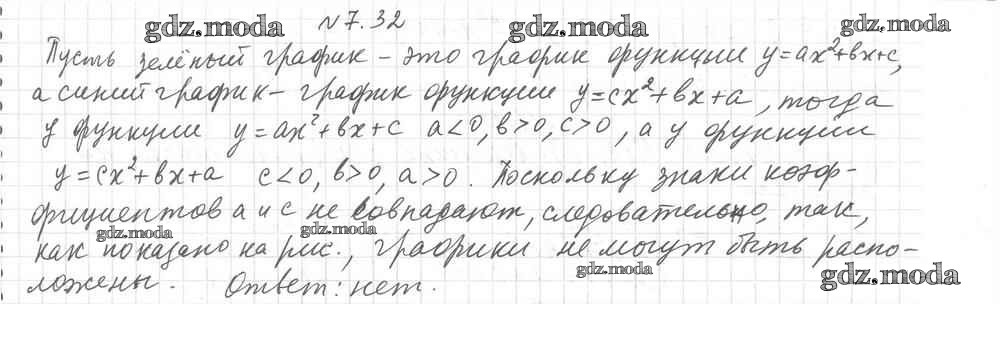 №7.32
gdz.moda gdz.moda gdz.moda
Пусть зелёный график – это график функции y=ax²+bx+c,
а синий график – график функции y=cx²+bx+a, тогда
у функции y=ax²+bx+c a<0, b>0, c>0, а у функции
y=cx²+bx+a c<0, b>0, a>0. Поскольку знаки коэф-
фициентов a и c не совпадают, следовательно, так,
gdz.moda gdz.moda
как показано на рис., графики не могут быть распо-
gdz.moda gdz.moda
ложены. Ответ: нет.